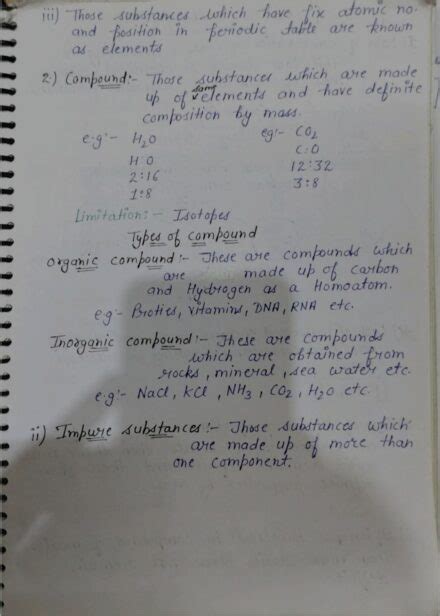 iii) Those substances which have fix atomic no.
and position in periodic table are known
as elements
2) Compound:- Those substances which are made
up of same elements and have definite
composition by mass.
e·g:- H₂O eg:- CO₂
H:O C:O
2:16 12:32
1:8 3:8
Limitation:- Isotopes
Types of compound
Organic compound:- These are compounds which
are made up of carbon
and Hydrogen as a Homoatom.
eg- Proties, vitamins, DNA, RNA etc.
Inorganic compound:- These are compounds
which are obtained from
rocks, mineral, sea water etc.
e.g:- Nacl, KCl, NH₃, CO₂, H₂O etc.
ii) Impure substances:- Those substances which
are made up of more than
one component.